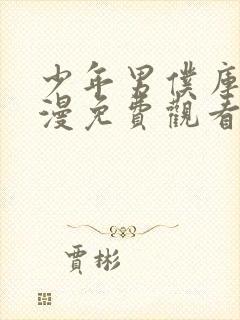 少年男僕庫
漫免費觀看
賈彬